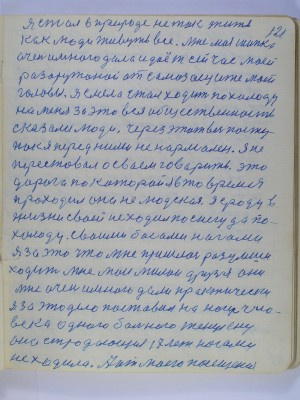 121
Я стал в природе не так жить
как люди живут все. Мне моя шапка
очень много дала идает сейчас моей
разгруженой от самозащите моей
головы. Я смело стал ходить по холоду
на меня за это вся общественность
сказали люди, через этот твой посту-
пок я перед ними не нармален. Я не
перестовал о своем говарить. Это
дорога по которой я в то время
проходил она не людская. Я сроду в
жизни своей не ходил по снегу да по-
холоду. своими босами нагами
я за это что мне пришлось разумши
ходить мне мои милаи друзья они
мне очень много дали практически
я за это дело поставил на ноги чио-
века одного больного женщену
она страдающая 17 лет ногами
не ходила. А от моего